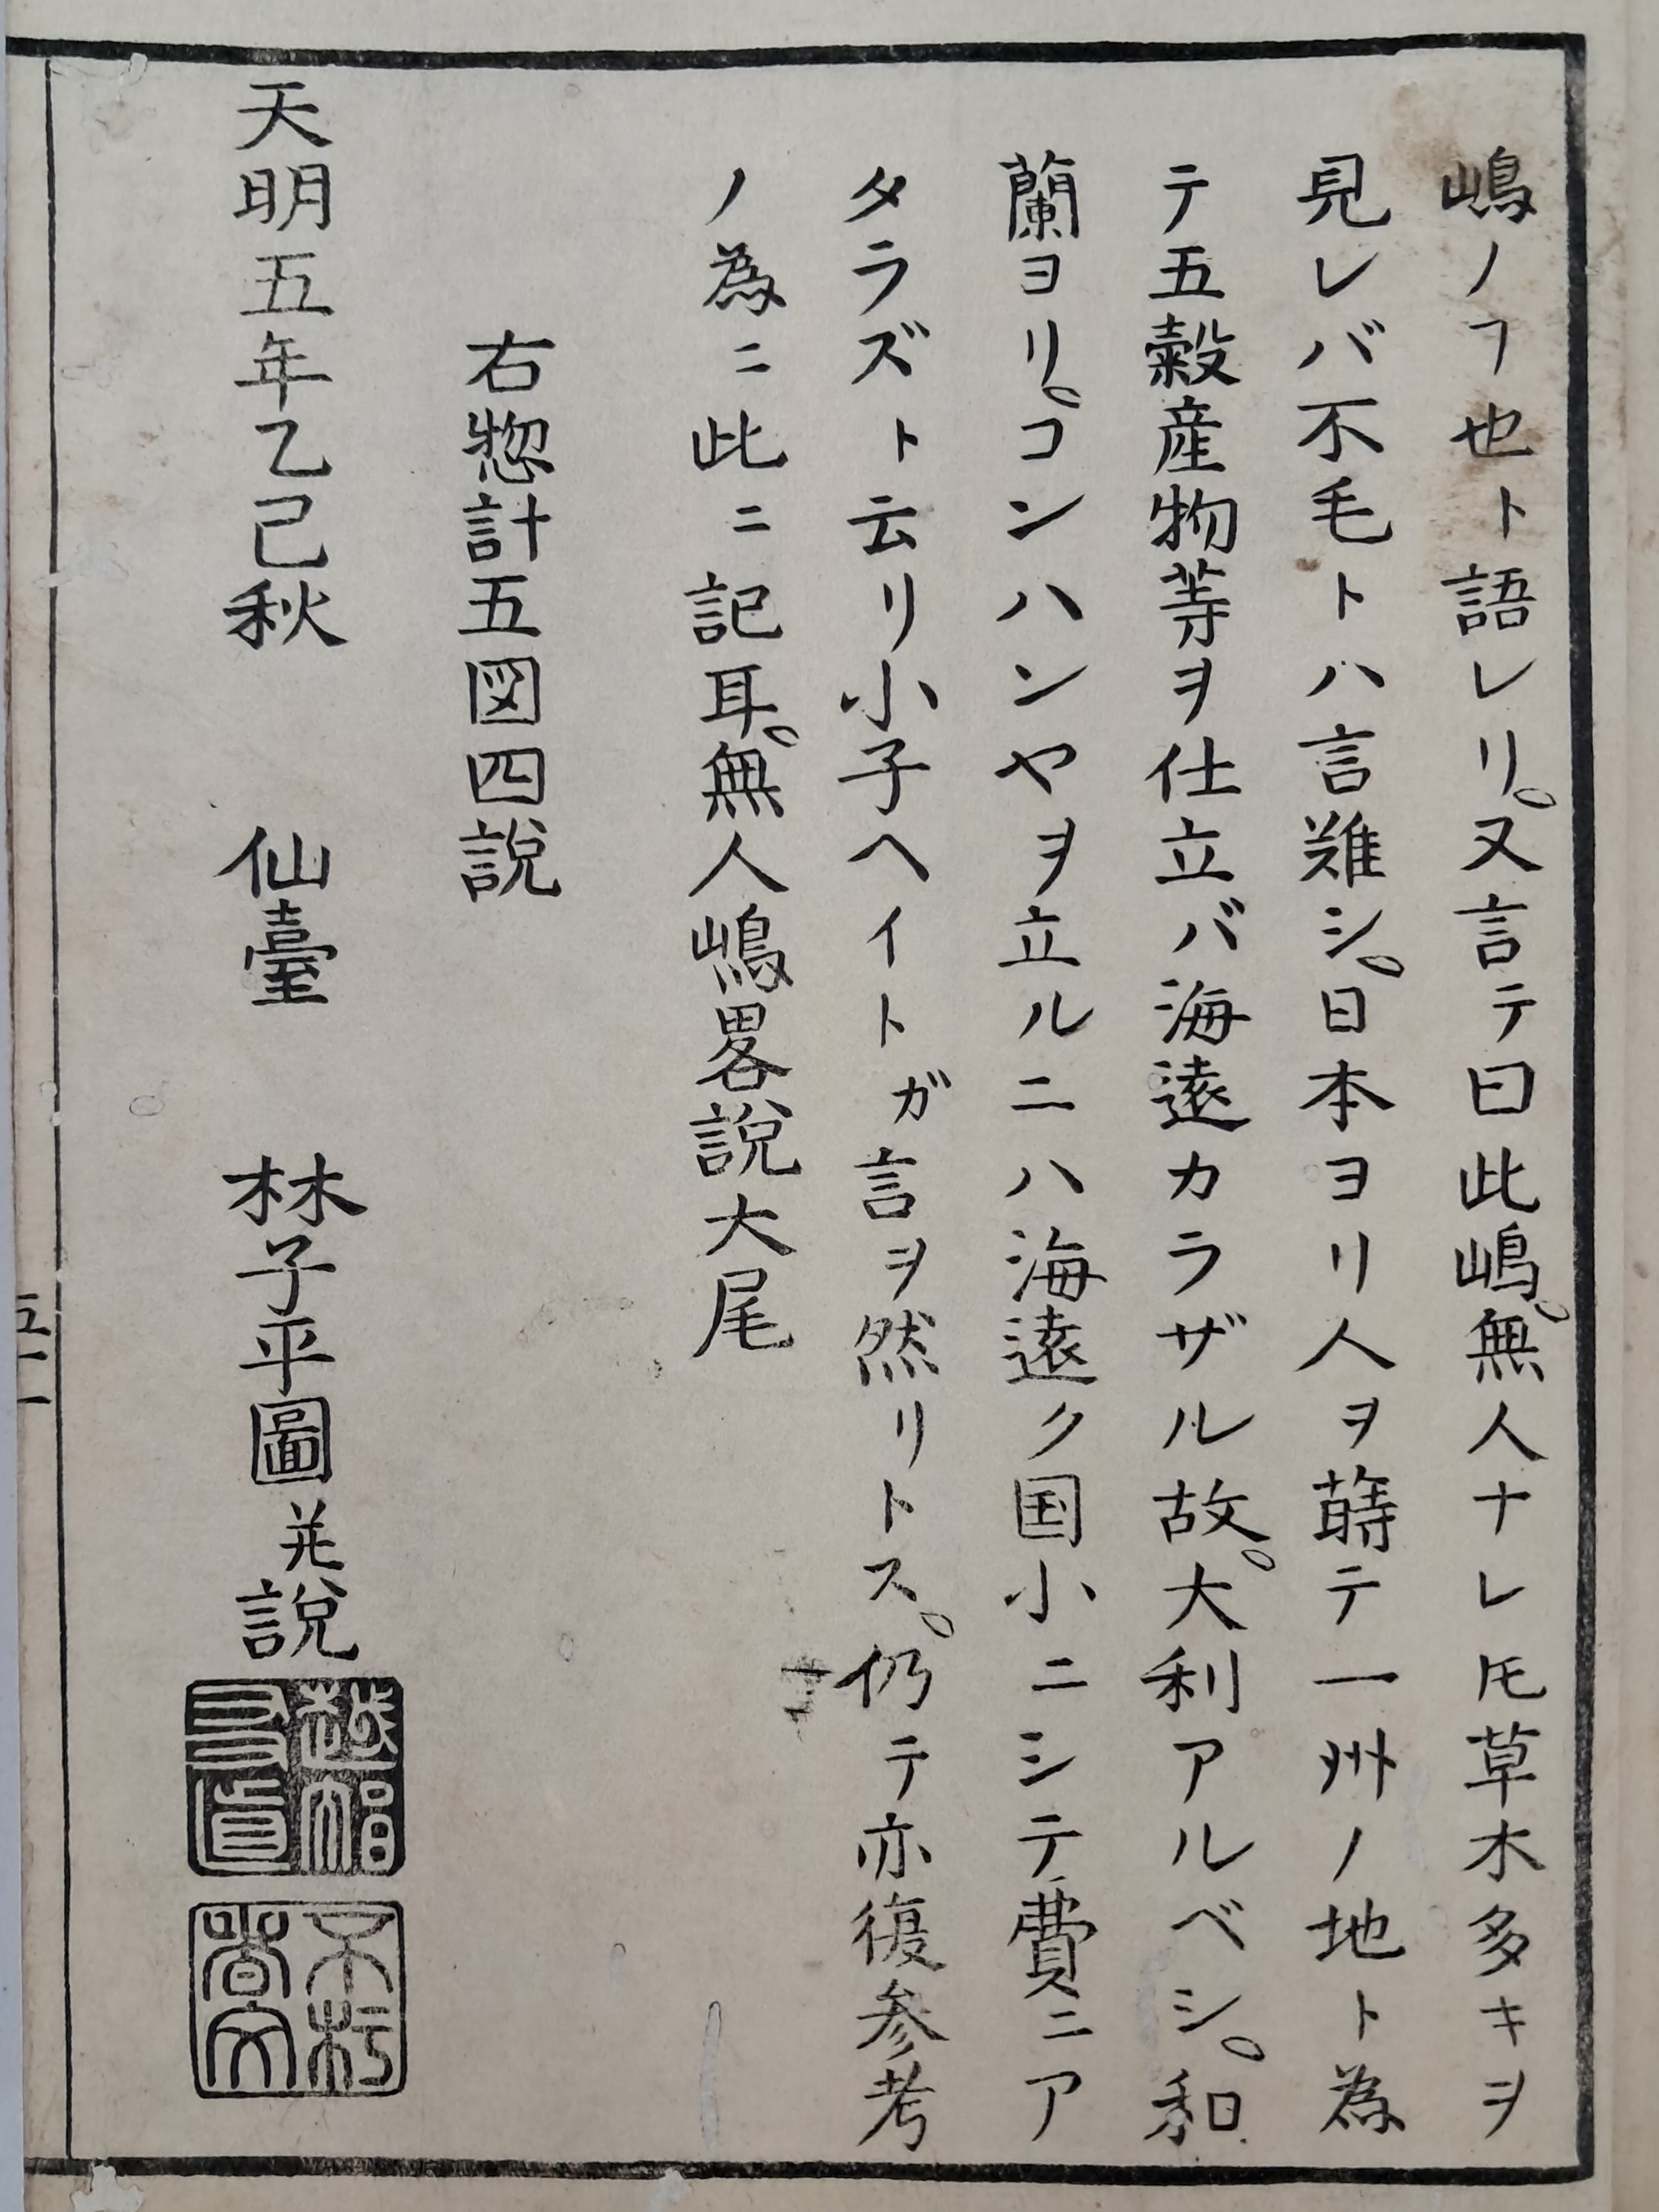 嶋ノヿ也ト語レリ。又言テ曰此嶋。無人ナレ𪜈草木多キヲ
見レバ不毛トハ言難シ。日本ヨリ人ヲ蒔テ一州ノ地ト為
テ五穀産物等ヲ仕立バ海遠カラザル故。大利アルベシ。和
蘭ヨリ。コンハンヤヲ立ルニハ海遠ク国小ニシテ費ニア
タラズト云リ小子ヘイトガ言ヲ然リトス。仍テ亦復参考
ノ為ニ此ニ記耳。無人嶋畧説大尾
右惣計五図四説
天明五年乙己秋 仙臺 林子平圖並説
不朽
尚文